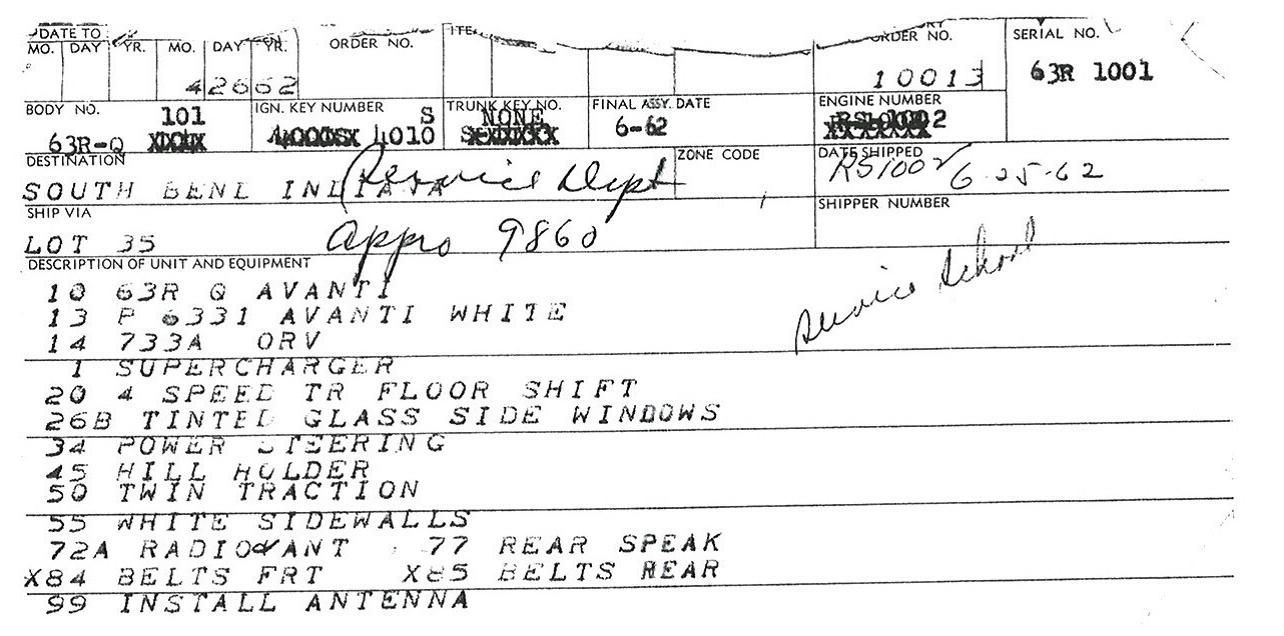 DATE TO
MO. DAY YR. MO. DAY YR. ORDER NO. ITE ORDER NO. SERIAL NO.
42662 10013 63R 1001
BODY NO. IGN. KEY NUMBER TRUNK KEY NO. FINAL ASSY. DATE ENGINE NUMBER
101 S NONE
63R-Q 1010 6-62 2
DESTINATION ZONE CODE DATE SHIPPED
SOUTH BENL INLIANA Service Dept RS1002 6-25-62
SHIP VIA SHIPPER NUMBER
LOT 35 appro 9860
DESCRIPTION OF UNIT AND EQUIPMENT
Service School
10 63R Q AVANTI
13 P 6331 AVANTI WHITE
14 733A ORV
1 SUPERCHARGER
20 4 SPEED TR FLOOR SHIFT
26B TINTED GLASS SIDE WINDOWS
34 POWER STEERING
45 HILL HOLDER
50 TWIN TRACTION
55 WHITE SIDEWALLS
72A RADIO&ANT 77 REAR SPEAK
X84 BELTS FRT X85 BELTS REAR
99 INSTALL ANTENNA